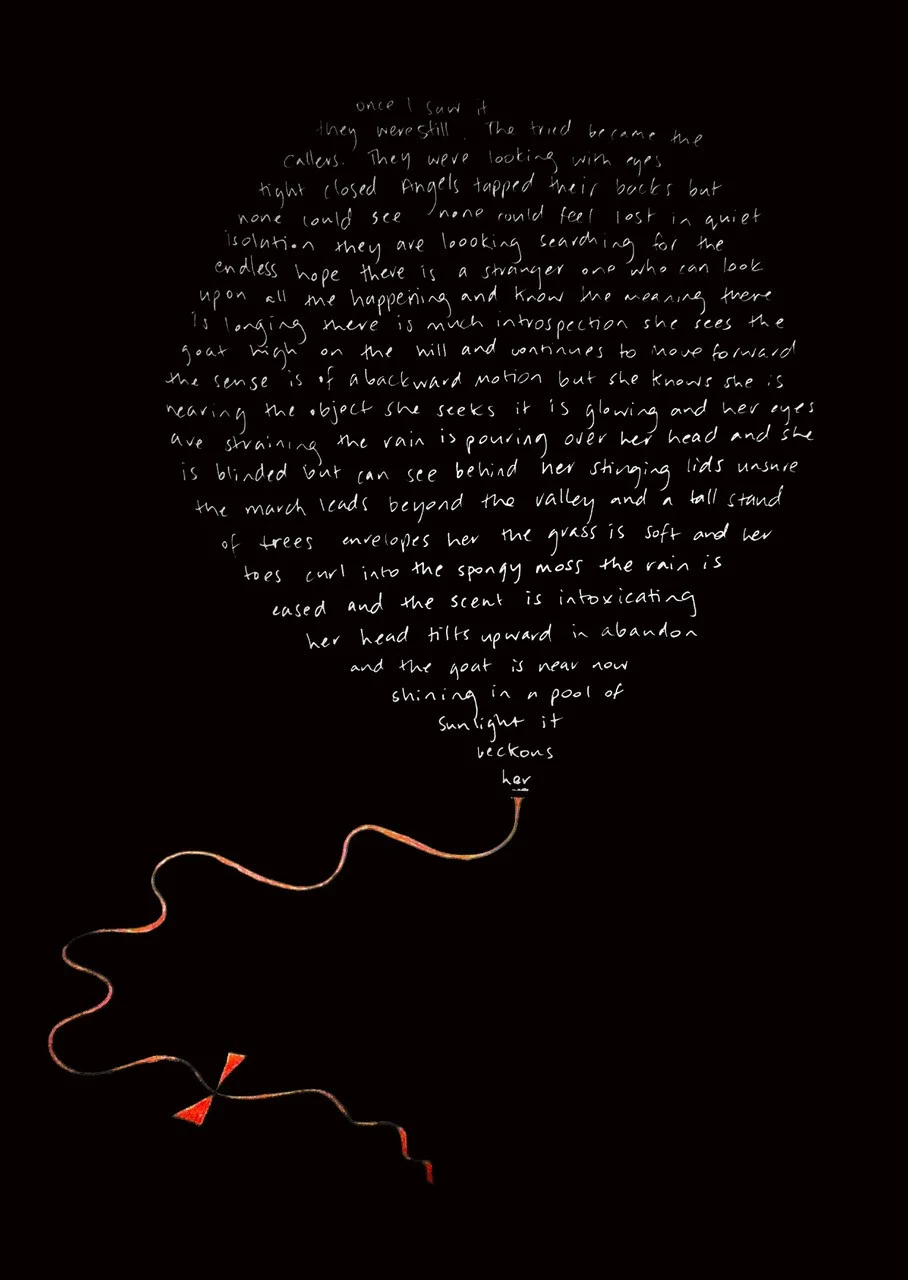 once I saw it
they were still. The tried became the
callers. They were looking with eyes
tight closed Angels tapped their backs but
none could see none could feel lost in quiet
isolation they are loooking searching for the
endless hope there is a stranger one who can look
upon all the happening and know the meaning there
is longing there is much introspection she sees the
goat high on the hill and continues to move forward
the sense is of a backward motion but she knows she is
nearing the object she seeks it is glowing and her eyes
are straining the rain is pouring over her head and she
is blinded but can see behind her stinging lids unsure
the march leads beyond the valley and a tall stand
of trees envelopes her the grass is soft and her
toes curl into the spongy moss the rain is
eased and the scent is intoxicating
her head tilts upward in abandon
and the goat is near now
shining in a pool of
sunlight it
beckons
her